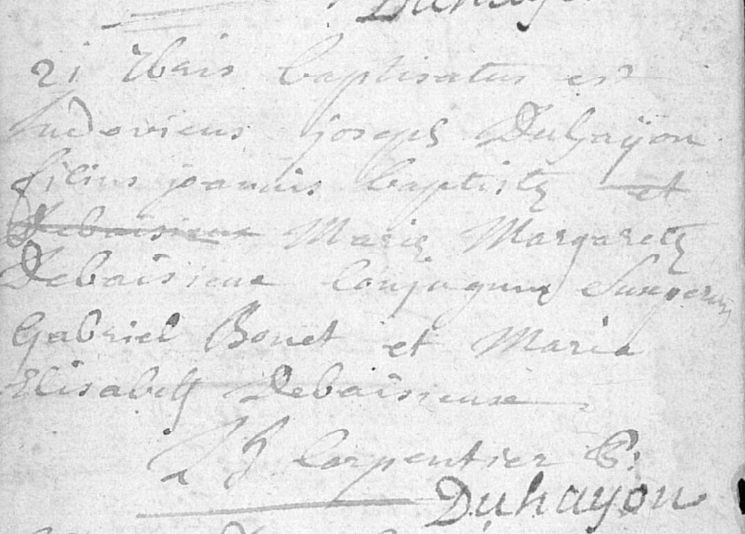 Duhayon
21 7bris baptisatus est
Ludovicus joseph Duhaÿon
filius joannis baptistæ et
Debaisieux Mariæ Margaretæ
Debaisieux Conjugum Susperunt
Gabriel Bonet et Maria
Elisabeth Debaisieux
Carpentier
Duhayon